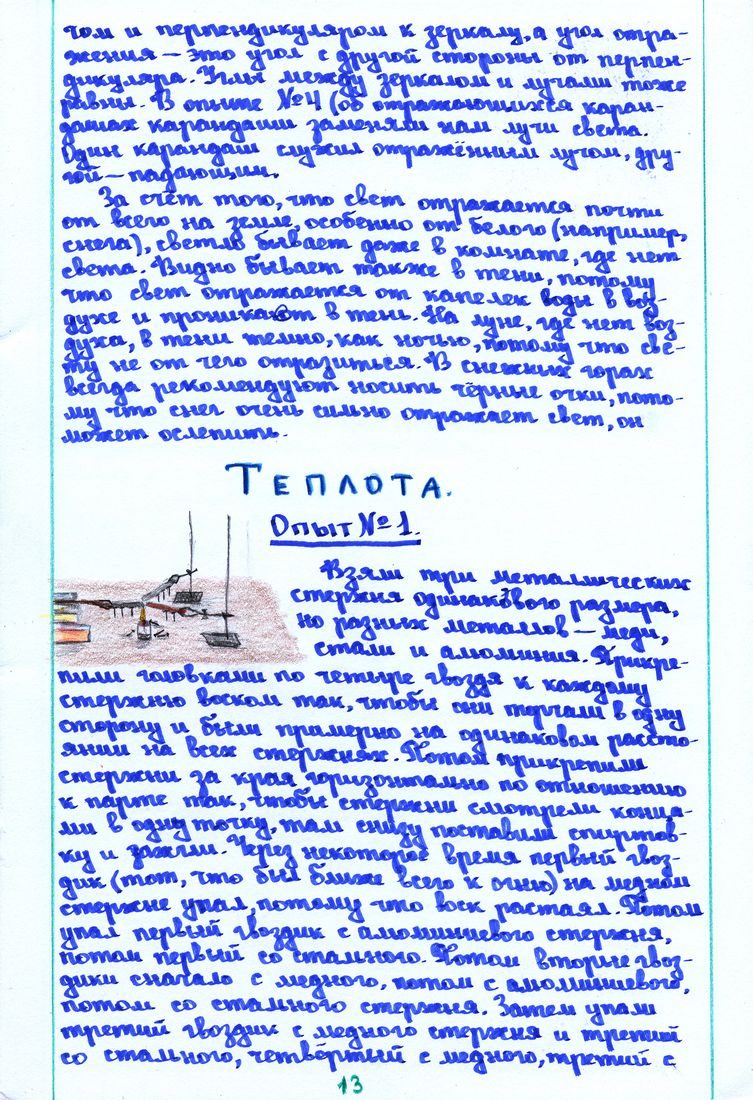 том и перпендикуляром к зеркалу, а угол отра-
жения — это угол с другой стороны от перпен-
дикуляра. Углы между зеркалом и лучами тоже
равны. В опыте №4 (об отражающихся каран-
дашах карандаши заменяли нам лучи света.
Один карандаш служил отражённым лучом, дру-
гой — падающим.
За счёт того, что свет отражается почти
от всего на земле, особенно от белого (например,
снега), светло бывает даже в комнате, где нет
света. Видно бывает также в тени, потому
что свет отражается от капелек воды в воз-
духе и проникает в тень. На луне, где нет воз-
духа, в тени темно, как ночью, потому что све-
ту не от чего отразиться. В снежных горах
всегда рекомендуют носить чёрные очки, пото-
му что снег очень сильно отражает свет, он
может ослепить.
Теплота.
Опыт №1.
Взяли три металлических
стержня одинакового размера,
но разных металлов — меди,
стали и алюминия. Прикре-
пили головками по четыре гвоздя к каждому
стержню воском так, чтобы они торчали в одну
сторону и были примерно на одинаковом рассто-
янии на всех стержнях. Потом прикрепили
стержни за края горизонтально по отношению
к парте так, чтобы стержни смотрели конца-
ми в одну точку, там снизу поставили спиртов-
ку и зажгли. Через некоторое время первый гвоз-
дик (тот, что был ближе всего к огню) на медном
стержне упал, потому что воск растаял. Потом
упал первый гвоздик с алюминиевого стержня,
потом первый со стального. Потом вторые гвоз-
дики сначало с медного, потом с алюминиевого,
потом со стального стержня. Затем упали
третий гвоздик с медного стержня и третий
со стального, четвёртый с медного, третий с
13